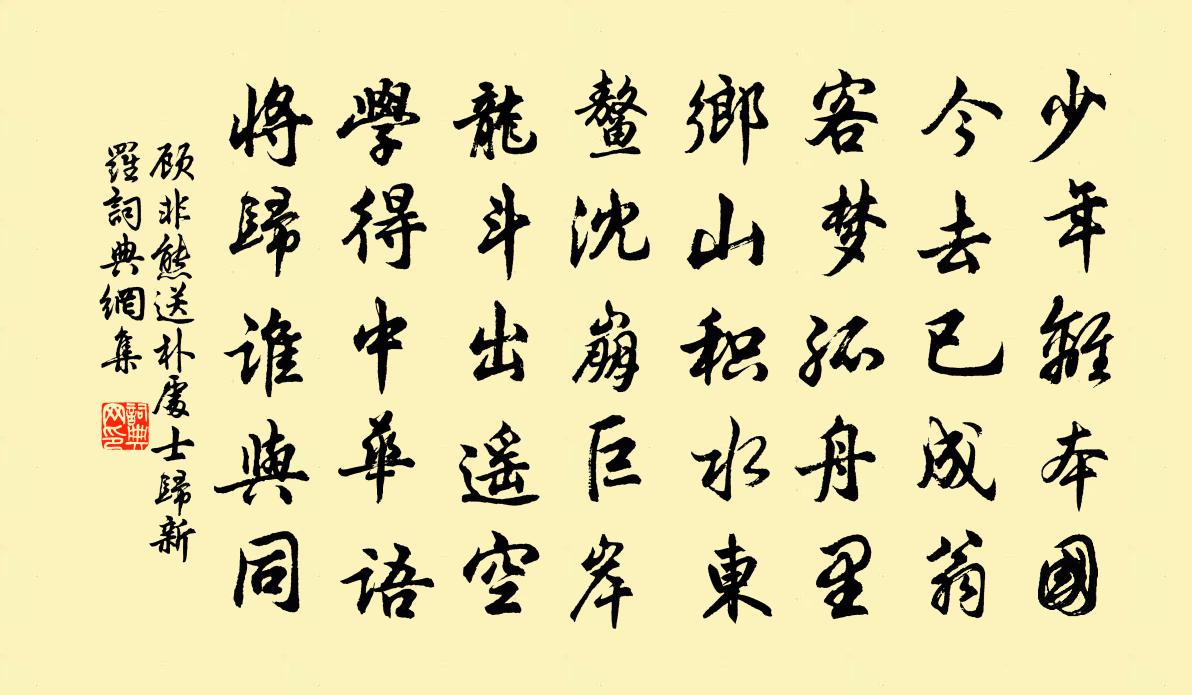 少年離本國
今去已成翁
客梦孤舟里
鄉山积水東
鳌沈崩巨岸
龍斗出遥空
學得中華語
將歸誰與同
顾非熊送朴處士歸新
羅詞典網集
詞典网印